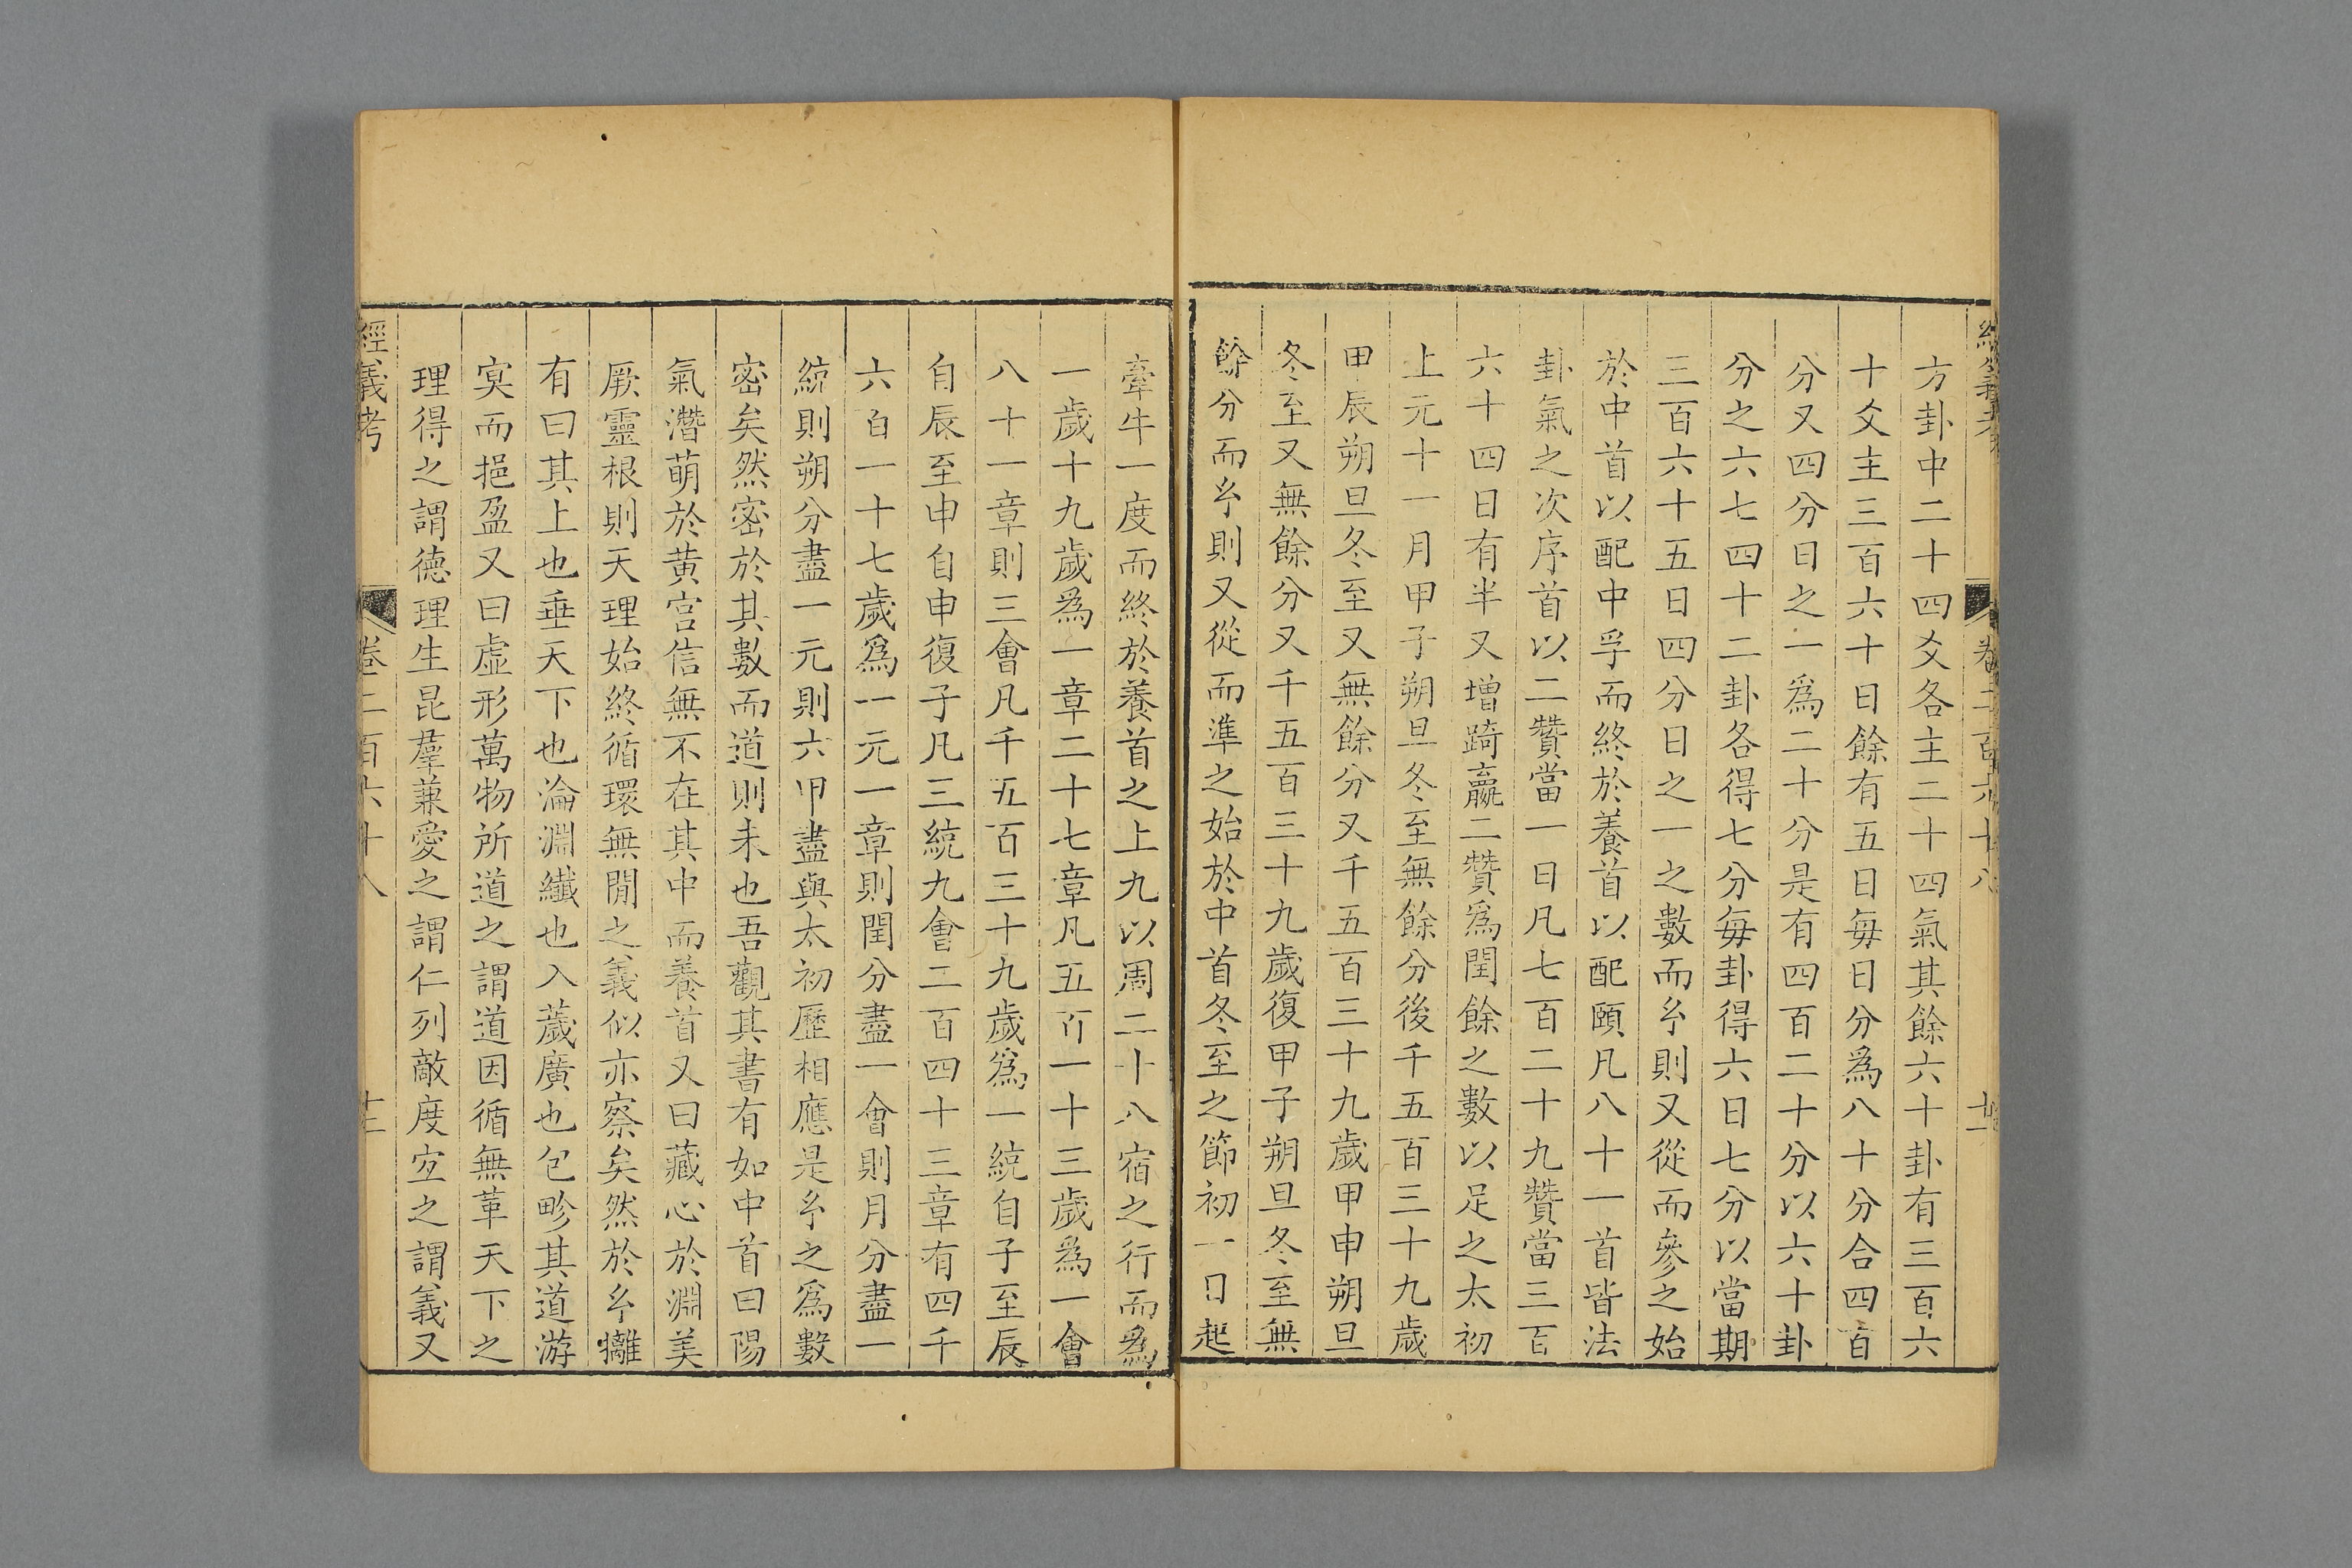 經義考 卷二百六十八 十二
方卦中二十四爻各主二十四氣其餘六十卦有三百六
十爻主三百六十日餘有五日每日分爲八十分合四百
分又四分日之一爲二十分是有四百二十分以六十卦
分之六七四十二卦各得七分每卦得六日七分以當期
三百六十五日四分日之一之數而𤣥則又從而參之始
於中首以配中孚而終於養首以配頤凡八十一首皆法
卦氣之次序首以二贊當一日凡七百二十九贊當三百
六十四日有半又增踦嬴二贊爲閏餘之數以足之太初
上元十一月甲子朔旦冬至無餘分後千五百三十九歲
甲辰朔旦冬至又無餘分又千五百三十九歲甲申朔旦
冬至又無餘分又千五百三十九歲復甲子朔旦冬至無
餘分而𤣥則又從而準之始於中首冬至之節初一日起
牽牛一度而終於養首之上九以周二十八宿之行而爲
一歲十九歲爲一章二十七章凡五百一十三歲爲一會
八十一章則三會凡千五百三十九歲爲一統自子至辰
自辰至申自申復子凡三統九會二百四十三章有四千
六百一十七歲爲一元一章則閏分盡一會則月分盡一
統則朔分盡一元則六甲盡與太初歷相應是𤣥之爲數
密矣然密於其數而道則未也吾觀其書有如中首曰陽
氣潛萌於黃宮信無不在其中而養首又曰藏心於淵美
厥靈根則天理始終循環無閒之義似亦察矣然於𤣥攡
有曰其上也垂天下也淪淵纖也入薉廣也包畛其道游
冥而挹盈又曰虛形萬物所道之謂道因循無革天下之
理得之謂德理生昆羣兼愛之謂仁列敵度宜之謂義又
經義考 卷二百六十八 十三